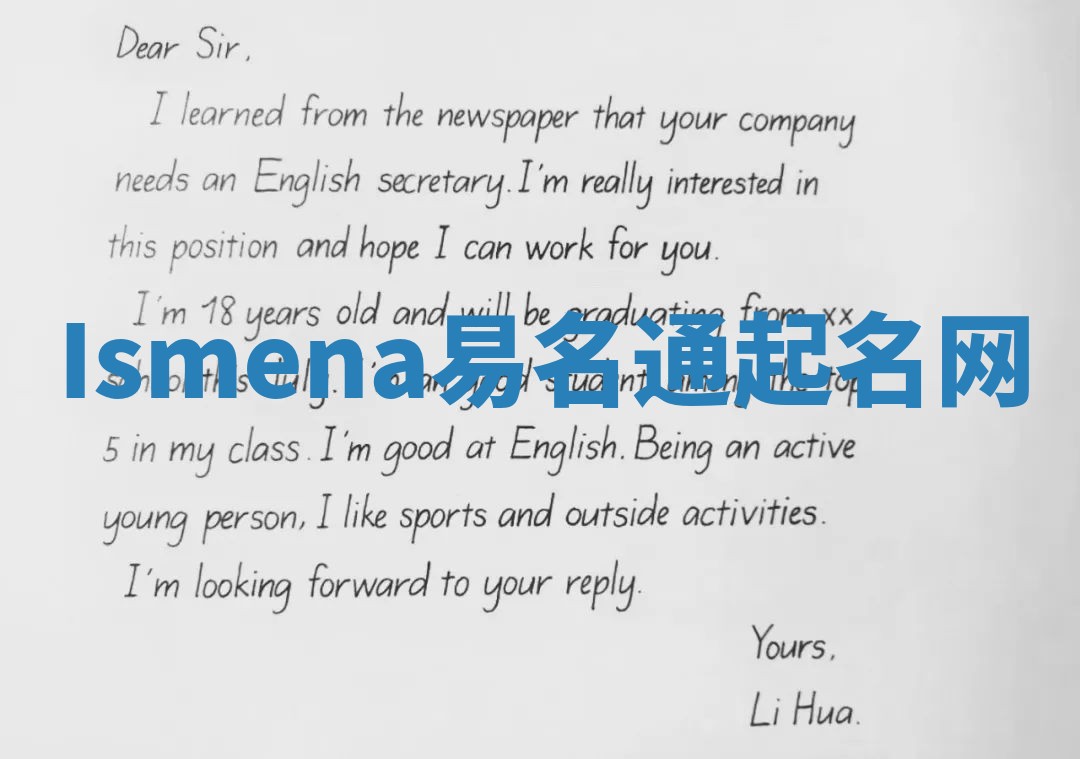 Dear Sir,
I learned from the newspaper that your company
needs an English secretary. I'm really interested in
this position and hope I can work for you.
I'm 18 years old and will be graduating from xx
Ismena易名通起名网
school this July. I'm a good student among the top
5 in my class. I'm good at English. Being an active
young person, I like sports and outside activities.
I'm looking forward to your reply.
Yours,
Li Hua.